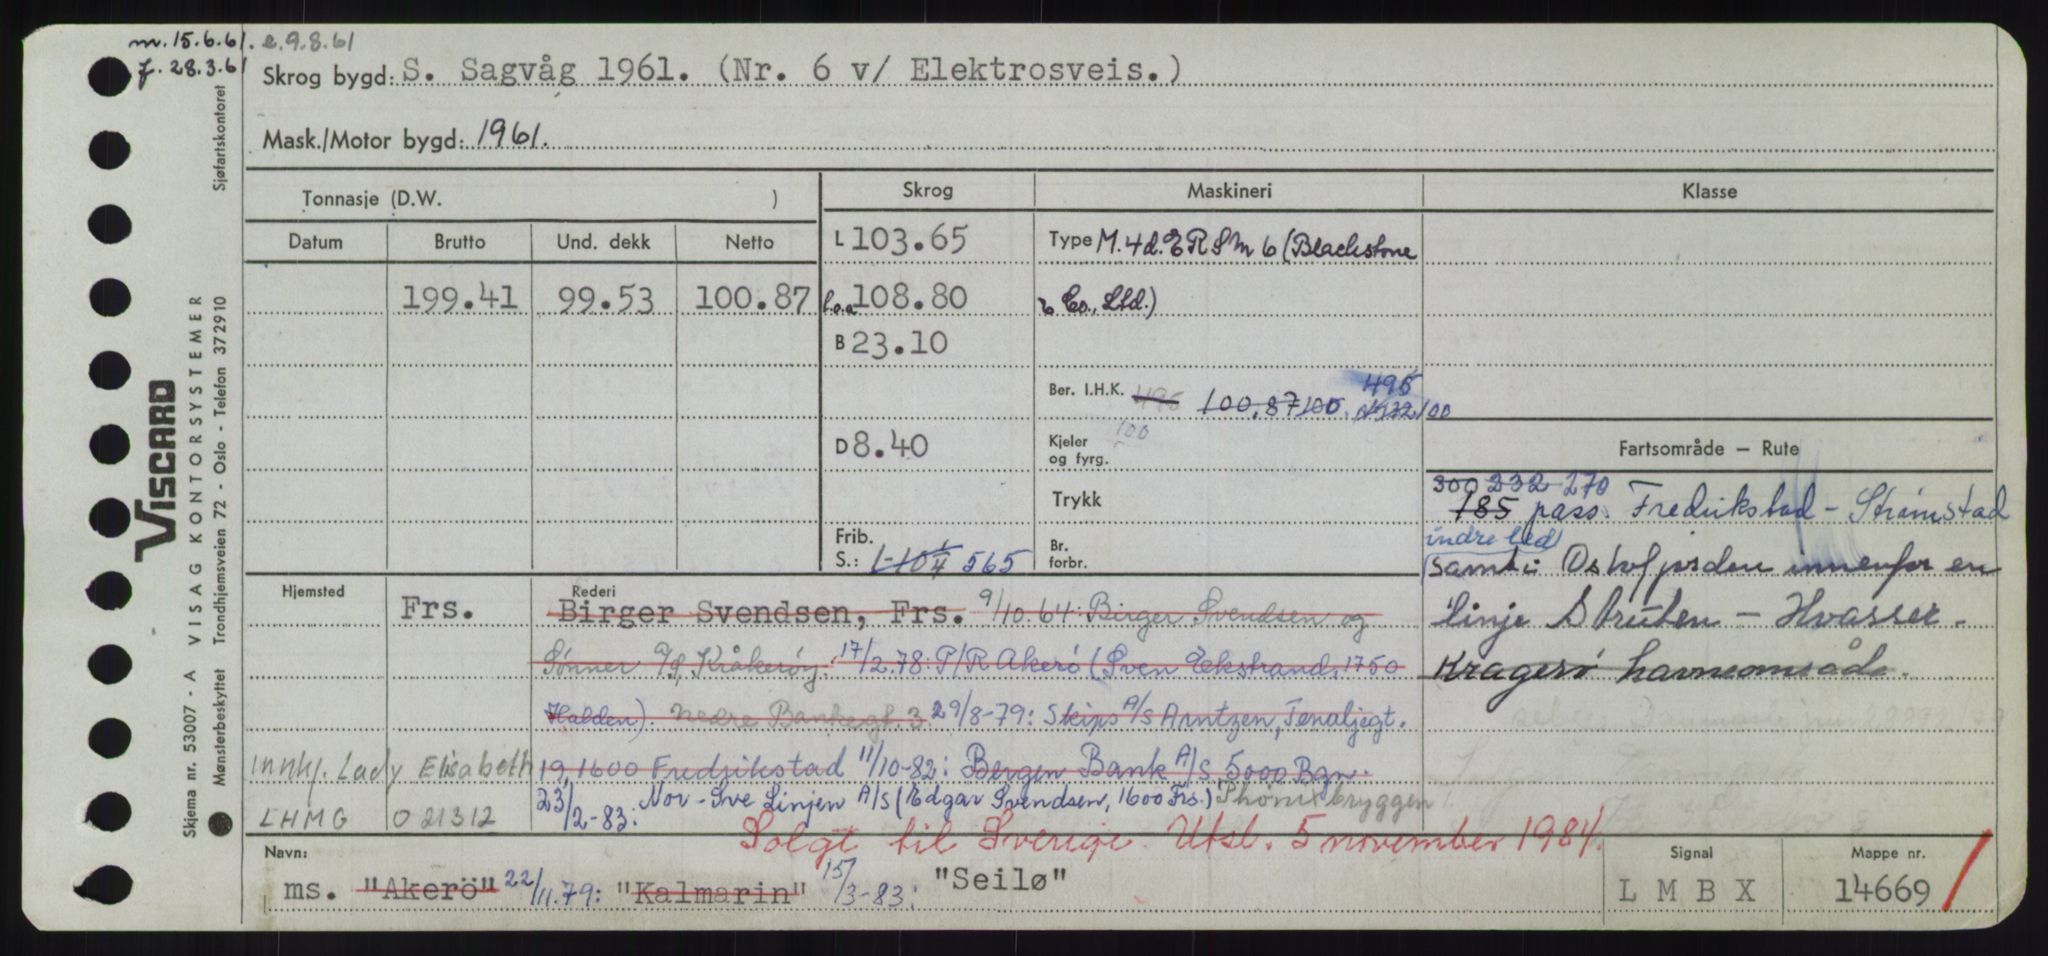 m. 15.6.61. e. 9.8.61
f. 28.3.61
Skrog bygd: S. Sagvåg 1961. (Nr. 6 v/ Elektrosveis.)
Mask./Motor bygd: 1961.
Tonnasje (D.W. )
Skrog
Maskineri
Klasse
Datum Brutto Und. dekk Netto
199.41 99.53 100.87
L 103.65
L.o.a 108.80
B 23.10
D 8.40
Frib.
S.: 1-10¼ 565
Type M. 4d. ERSM 6 (Blackstone
& Co., Ltd.)
Ber. I.H.K. 495 100,87 100 495 100
Kjeler 100
og fyrg.
Trykk
Br.
forbr.
Fartsområde – Rute
300 232 270
185 pass. Fredrikstad - Strømstad
indre led
samt i Oslofjorden innenfor en
linje Struten - Hvasser.
Kragerø havneområde.
Hjemsted Frs.
Rederi
Birger Svendsen, Frs. 9/10.64: Birger Svendsen og
Sønner A/S, Kråkerøy. 17/2.78: P/R Akerö (Sven Eckstrand, 1750
Halden). Nedre Bankegt. 3 29/8-79: Skips A/S Arntzen, Tenaljegt.
19, 1600 Fredrikstad 11/10-82: Bergen Bank A/S 5000 Bgn.
23/2-83: Nor-Sve Linjen A/S (Edgar Svendsen, 1600 Frs.) Phønixbryggen 1.
Innkj. Lady Elisabeth
LHMG O 21312
Solgt til Sverige. Utsl. 5 november 1984.
Navn:
ms. "Akerö" 22/11.79: "Kalmarin" 15/3-83: "Seilø"
Signal
L M B X
Mappe nr.
14669
VISCARD
Skjema nr. 53007 - A VISAG KONTORSYSTEMER
Mønsterbeskyttet Trondhjemsveien 72 - Oslo - Telefon 372910 Sjøfartskontoret